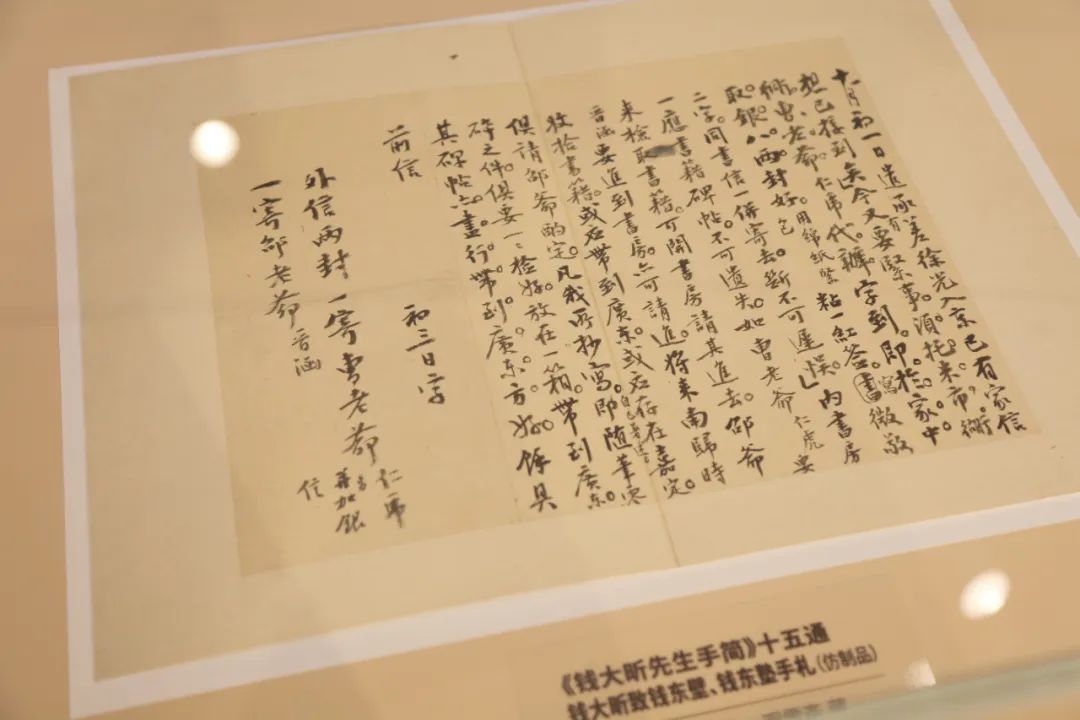 十一月初一日遣承差徐光入京已有家信
想已接到矣今又有要緊事須托米市衚
衕曹老爺仁席代辦字到即於家中
取銀八兩封好包用綿紙緊粘一紅簽書寫微敬
二字同書信一併寄去斷不可遲悞内書房
一應書籍碑帖不可遺失如曹老爺仁虎要
來檢取書籍可開書房請其進去邵爺
晉涵要進到書房亦可請進將來南歸時
收拾書籍或應帶到廣東或應存在嘉定
俱請邵爺酌定凡我所抄寫即隨筆零
碎之件俱要一一檢好放在一箱帶到廣東
其碑帖亦盡行帶到廣東方好餘具
前信
初三日字
外信兩封一寄曹老爺仁虎
并加銀
信
一寄邵老爺晉涵
《钱大昕先生手简》十五通
钱大昕致钱东壁、钱东塾手札(仿制品)